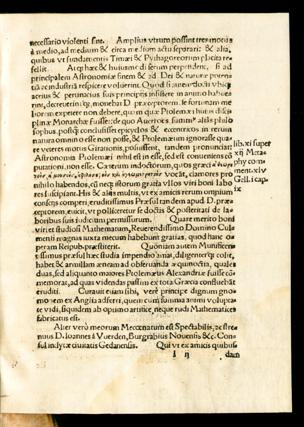 necessario violenti sint. Amplius utrum possint tres motus
à medio, ad medium & circa medium actu separari: & alia,
quibus ut fundamentis Timæi & Pythagoreorum placita re=
fellit. At qb hæc & huiusmodi secum perpendent, si ad
principalem Astronomiæ finem & ad Dei & naturæ poten=
tiã ac industriã respicere voluerint. Quod si autem docti
acrius & pertinacius suis principijs insistere in animo habue=
rint, decreverint, monebat D. præceptorem se fortunam me
liorem expetere non debere, quàm quæ Ptolemæi huius disci
plinæ Monarchæ fuisset: de quo Averroes summus aliàs philo
sophus, postquam conclusisset epicyclos & eccentricos in rerum
natura omnino esse non posse, & Ptolemæum ignorasse qua=
re veteres motus Girationis posuissent, tandem pronunciat:
Astronomia Ptolemæi nihil est in esse, sed est conveniens cõ
putationi, non esse. Cæterum indoctorum, quos græci
vocãt, clamores pro
nihilo habendos, si neq; illorum gratia ullos viri boni labo
res suscipiant. His & alijs multis, ut ex amicis rerum omnium
conscijs comperi, eruditissimus Præsul tandem apud D. præ=
ceptorem evicit, ut polliceretur se doctis & posteritati de la=
boribus suis iudicium permissurum. Quare merito boni
viri et studiosi Mathematum, Reverendissimo Domino Culm
enti magnas iuxta mecum habebunt gratias, quod hanc o=
peram Reipub. præstiterit. Quoniam autem Munificen=
tissimus præsul hæc studia impendio amat, diligenterq; colit,
habet & armillam æneam ad observanda æquinoctia, quales
duas, sed aliquanto maiores Ptolemæus Alexandriæ fuisse cõ
memorat, ad quas videndas passim ex tota Græcia confluebãt
eruditi. Curavit etiam sibi, verè principe dignum gno
monem ex Anglia adferri, quem cum summa animi volupta=
te vidi, siquidem ab optimo artifice, neq; rudi Mathematices
fabricatus est.
Alter verò meorum Mecœnatum est Spectabilis, ac stre
nuus D. Ioannes à Vuerden, Burgrabius Novensis &c. Con
sul inclytæ civitatis Gedanensis. Qui ut ex amicis quibus
I ij dam
lib. xi super
xij Metas
phy com=
ment. xlv
Gell. i cap.
ix